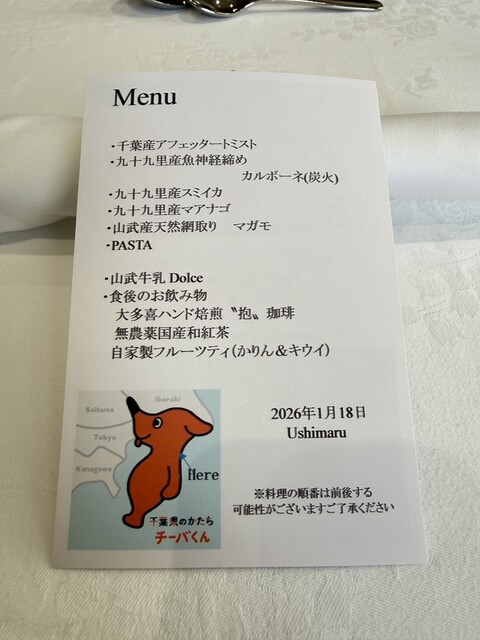 Menu
・千葉産アフェッタートミスト
・九十九里産魚神経締め
カルボーネ(炭火)
・九十九里産スミイカ
・九十九里産マアナゴ
・山武産天然網取り　マガモ
・PASTA
・山武牛乳 Dolce
・食後のお飲み物
大多喜ハンド焙煎〝抱〟珈琲
無農薬国産和紅茶
自家製フルーツティ(かりん＆キウイ)
2026年1月18日
Ushimaru
※料理の順番は前後する
可能性がございますご了承ください
Ibaraki
Saitama
Tokyo
Kanagawa
Here
千葉県のかたち
チーバくん